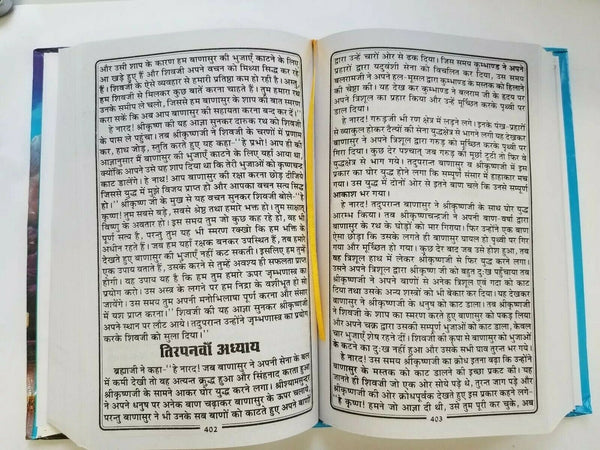 और उसी शाप के कारण हम बाणासुर की भुजाएँ काटने के लिए
आ खड़े हुए हैं और शिवजी अपने वचन को मिथ्या सिद्ध कर रहे
हैं। शिवजी के ऐसे व्यवहार से हमारी प्रतिष्ठा कम हो रही है। अस्तु,
हम शिवजी से मिलकर कुछ बातें करना चाहते हैं। तुम हमारा रथ
उनके समीप ले चलो, जिससे हम बाणासुर के शाप की बात स्मरण
करा सकें कि अब आप बाणासुर की सहायता करना बन्द कर दें।''
हे नारद! श्रीकृष्ण की यह आज्ञा सुनकर दारुक रथ को शिवजी
के पास ले पहुंचा। तब श्रीकृष्णजी ने शिवजी के चरणों में प्रणाम
कर, हाथ जोड़, स्तुति करते हुए यह कहा-''हे प्रभो! आप ही की
आज्ञानुसार मैं बाणासुर की भुजाएँ काटने के लिए यहां आया था,
क्योंकि आपने उसे यह शाप दिया था कि तेरी भुजाओं को कृष्णचन्द्र
काट डालेंगे। हे नाथ! आप बाणासुर की रक्षा करना छोड़ दीजिये
जिससे युद्ध में मुझे विजय प्राप्त हो और आपका वचन सत्य सिद्ध
हो।'' श्रीकृष्ण के मुख से यह वचन सुनकर शिवजी बोले-''हे
कृष्ण! तुम सबसे बड़े, सबसे श्रेष्ठ तथा हमारे भक्त हो। तुम साक्षात्
विष्णु के अवतार हो। इस समय तुम जो कुछ कह रहे हो, वह भी
पूर्ण सत्य है, परन्तु तुम यह भी स्मरण रक्खो कि हम भक्त के
अधीन रहते हैं। जब हम यहाँ रक्षक बनकर उपस्थित हैं, तब हमारे
देखते हुए बाणासुर की भुजाएँ नहीं कट सकतीं। इसलिए हम तुम्हें
एक उपाय बताते हैं, उसके करने से तुम्हें अवश्य ही सफलता प्राप्त
होगी। वह उपाय यह है कि तुम हमारे ऊपर जृम्भणास्त्र का
प्रयोग करो। उस अस्त्र के लगने पर हम निद्रा के वशीभूत हो सो
जायेंगे। उस समय तुम अपनी मनोभिलाषा पूर्ण करना और संसार
में यश प्राप्त करना।'' शिवजी की यह आज्ञा सुनकर श्रीकृष्णजी
अपने स्थान पर लौट आये। तदुपरान्त उन्होंने जृम्भणास्त्र का प्रयोग
करके शिवजी को सुला दिया।''
तिरपनवाँ अध्याय
ब्रह्माजी ने कहा-''हे नारद! जब बाणासुर ने अपनी सेना के बल
में कमी देखी तो वह अत्यन्त क्रुद्ध हुआ और सिंहनाद करता हुआ
श्रीकृष्णजी के सामने आकर घोर युद्ध करने लगा। श्रीश्यामसुन्दर
ने अपने धनुष पर अनेक बाण चढ़ाकर बाणासुर के ऊपर चलाये,
परन्तु बाणासुर ने भी उनके सब बाणों को काटते हुए अपने बाणों
402
द्वारा उन्हें चारों ओर से ढक दिया। जिस समय कुम्भाण्ड ने अपने
प्रहारों द्वारा यदुवंशी सेना को विचलित कर दिया, उस समय
बलरामजी ने अपने हल-मूसल द्वारा कुम्भाण्ड के मस्तक को हिलाने
की चेष्टा की। यह देख कर कुम्भाण्ड ने बलराम जी के हृदय पर
अपने त्रिशूल का प्रहार किया और उन्हें मूर्च्छित करके पृथ्वी पर
डाल दिया।
हे नारद! गरुड़जी भी रण क्षेत्र में लड़ने लगे। इनके पंख-प्रहारों
से व्याकुल होकर दैत्यों की सेना युद्धक्षेत्र से भागने लगी यह देखकर
बाणासुर ने अपने त्रिशूल द्वारा गरुड़ को मूर्छित करके पृथ्वी पर
गिरा दिया। कुछ देर पश्चात् जब गरुड़ की मूर्छा टूटी तो फिर वे
युद्धक्षेत्र से भाग गये। तदुपरान्त बाणासुर व श्रीकृष्णजी में इस
प्रकार का घोर युद्ध होने लगा कि सम्पूर्ण संसार में हाहाकार मच
गया। उस युद्ध में दोनों ओर से इतने बाण चले कि उनसे सम्पूर्ण
आकाश भर गया।
हे नारद! तदुपरान्त बाणासुर ने श्रीकृष्णजी के साथ घोर युद्ध
आरम्भ किया। तब श्रीकृष्णचन्द्रजी ने अपनी बाण-वर्षा द्वारा
बाणासुर के रथ के घोड़ों को मार गिराया। फिर उन्होंने एक बाण
ऐसा छोड़ा कि उसके लगते ही बाणासुर घायल हो पृथ्वी पर गिर
गया और मूर्छित हो गया। कुछ देर बाद जब उसे होश आया, तब
वह त्रिशूल हाथ में लेकर श्रीकृष्णजी से फिर युद्ध करने लगा।
उसने अपने त्रिशूल द्वारा श्रीकृष्ण जी को बहुत दुःख पहुँचाया तब
श्रीकृष्णजी ने अपने बाणों से अनेक त्रिशूल एवं गदा को काट
दिया तथा उसके अन्य शस्त्रों को भी बेकार कर दिया। यह देखकर
बाणासुर ने श्रीकृष्णजी के धनुष को काट डाला। तब श्रीकृष्णजी ने
शिवजी के शाप का स्मरण करते हुए बाणासुर के ऊपर चोट की
और अपने चक्र द्वारा उसकी सम्पूर्ण भुजाओं को काट डाला, केवल
चार भुजाएँ शेष रहने दीं। शिवजी की कृपा से बाणासुर को भुजाओं
के कटने का दुःख नहीं हुआ और उसके सभी घाव तुरन्त भर गये।
हे नारद! उस समय श्रीकृष्णजी का क्रोध इतना बढ़ा कि उन्होंने
बाणासुर के मस्तक को काट डालने की इच्छा प्रकट की। यह
जानते ही शिवजी जो एक ओर सोये पड़े थे, तुरन्त जाग पड़े और
श्रीकृष्णजी की ओर क्रोधपूर्वक देखते हुए इस प्रकार कहने लगे-
''हे कृष्ण! हमने जो आज्ञा दी थी, उसे तुम पूरी कर चुके, अब
403